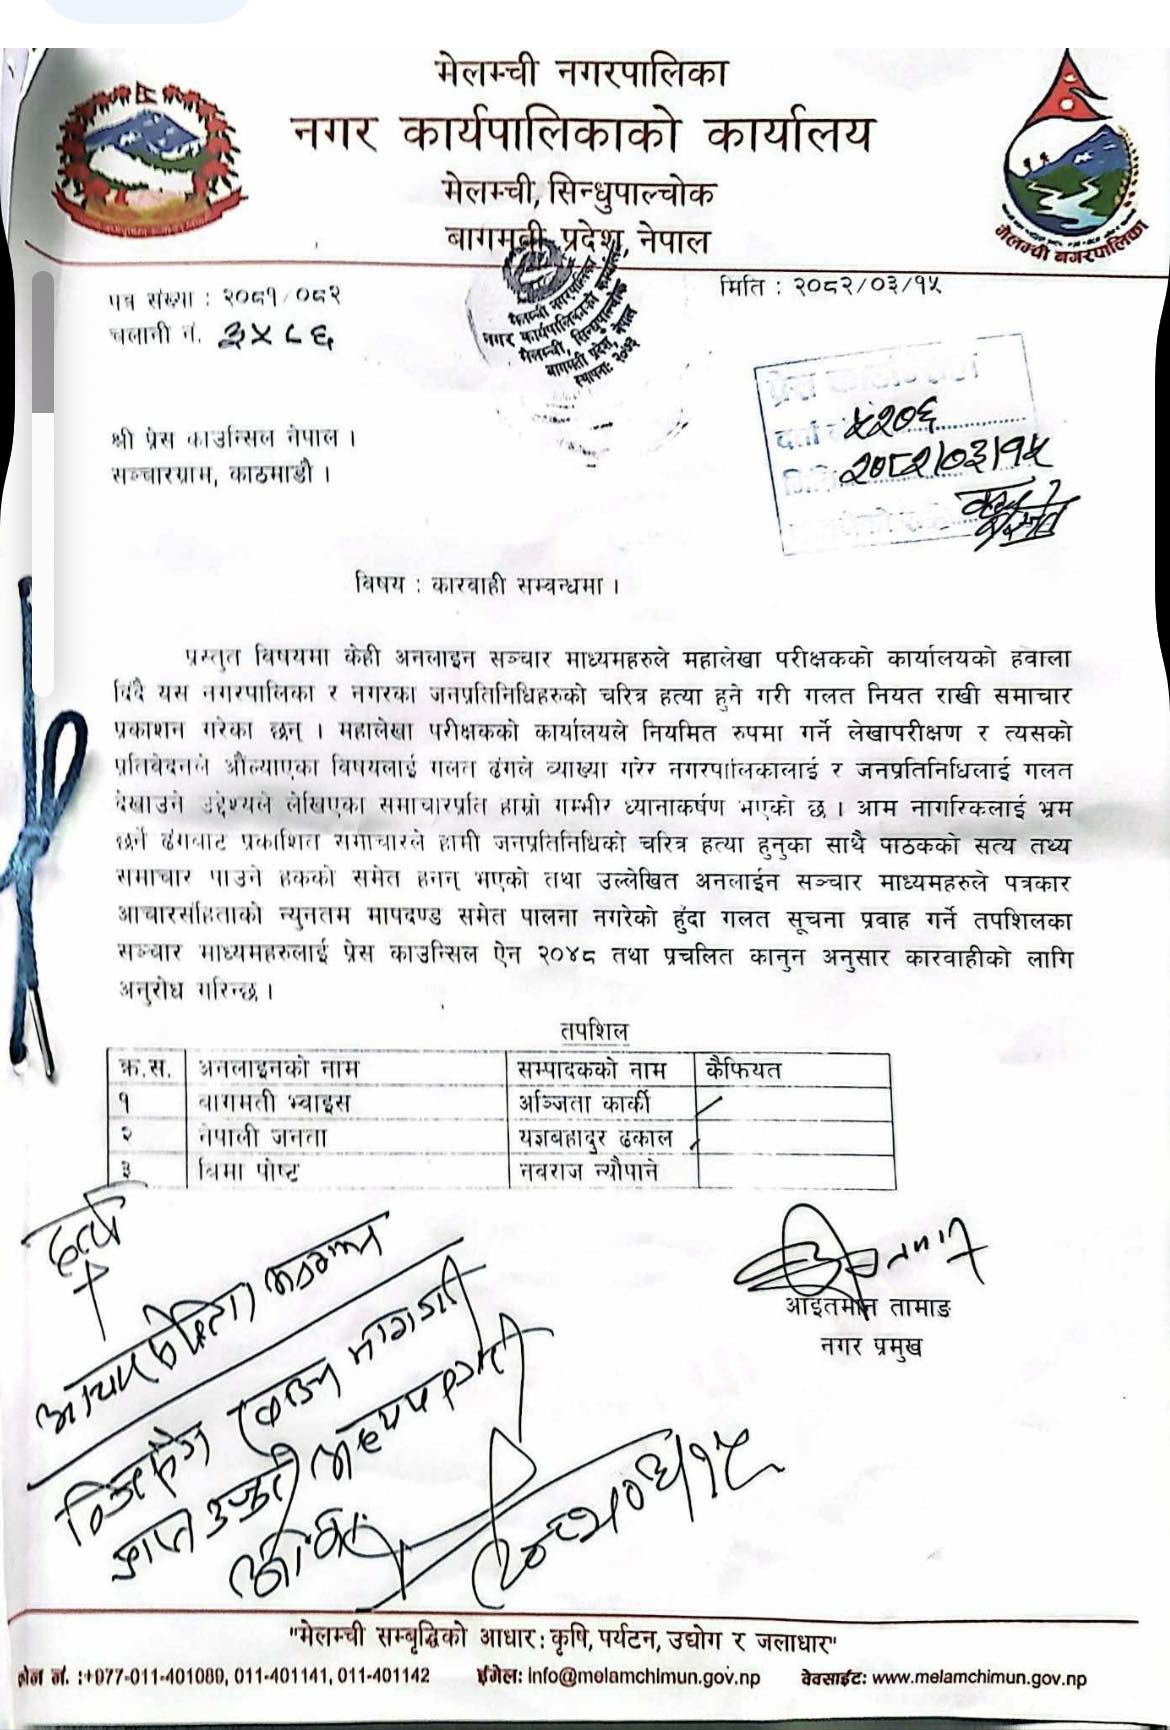 मेलम्ची नगरपालिका
नगर कार्यपालिकाको कार्यालय
मेलम्ची, सिन्धुपाल्चोक
बागमती प्रदेश, नेपाल
मेलम्ची नगरपालिका
पत्र संख्या : २०८१/०८२
चलानी नं. ३५८६
मिति : २०८२/०३/१५
मेलम्ची नगरपालिका
नगर कार्यपालिकाको कार्यालय
मेलम्ची, सिन्धुपाल्चोक
बागमती प्रदेश, नेपाल
स्थापना: २०७३
दर्ता ५२०६
२०८२/०३/१५
श्री प्रेस काउन्सिल नेपाल ।
सञ्चारग्राम, काठमाडौं ।
विषय : कारवाही सम्बन्धमा ।
प्रस्तुत विषयमा केही अनलाइन सञ्चार माध्यमहरुले महालेखा परीक्षकको कार्यालयको हवाला
दिदै यस नगरपालिका र नगरका जनप्रतिनिधिहरुको चरित्र हत्या हुने गरी गलत नियत राखी समाचार
प्रकाशन गरेका छन् । महालेखा परीक्षकको कार्यालयले नियमित रुपमा गर्ने लेखापरीक्षण र त्यसको
प्रतिवेदनले औंल्याएका विषयलाई गलत ढंगले व्याख्या गरेर नगरपालिकालाई र जनप्रतिनिधिलाई गलत
देखाउने उद्देश्यले लेखिएका समाचारप्रति हाम्रो गम्भीर ध्यानाकर्षण भएको छ । आम नागरिकलाई भ्रम
छर्ने ढंगबाट प्रकाशित समाचारले हामी जनप्रतिनिधिको चरित्र हत्या हुनुका साथै पाठकको सत्य तथ्य
समाचार पाउने हकको समेत हनन् भएको तथा उल्लेखित अनलाईन सञ्चार माध्यमहरुले पत्रकार
आचारसंहिताको न्युनतम मापदण्ड समेत पालना नगरेको हुँदा गलत सूचना प्रवाह गर्ने तपशिलका
सञ्चार माध्यमहरुलाई प्रेस काउन्सिल ऐन २०४८ तथा प्रचलित कानुन अनुसार कारवाहीको लागि
अनुरोध गरिन्छ ।
तपशिल
क्र.स. अनलाइनको नाम सम्पादकको नाम कैफियत
१ बागमती भ्वाइस अञ्जिता कार्की
२ नेपाली जनता यज्ञबहादुर ढकाल
३ बिमा पोष्ट नवराज न्यौपाने
आइतमान तामाङ
नगर प्रमुख
"मेलम्ची सम्बृद्धिको आधार: कृषि, पर्यटन, उद्योग र जलाधार"
फोन नं. :+977-011-401089, 011-401141, 011-401142 ईमेल: info@melamchimun.gov.np वेवसाईट: www.melamchimun.gov.np